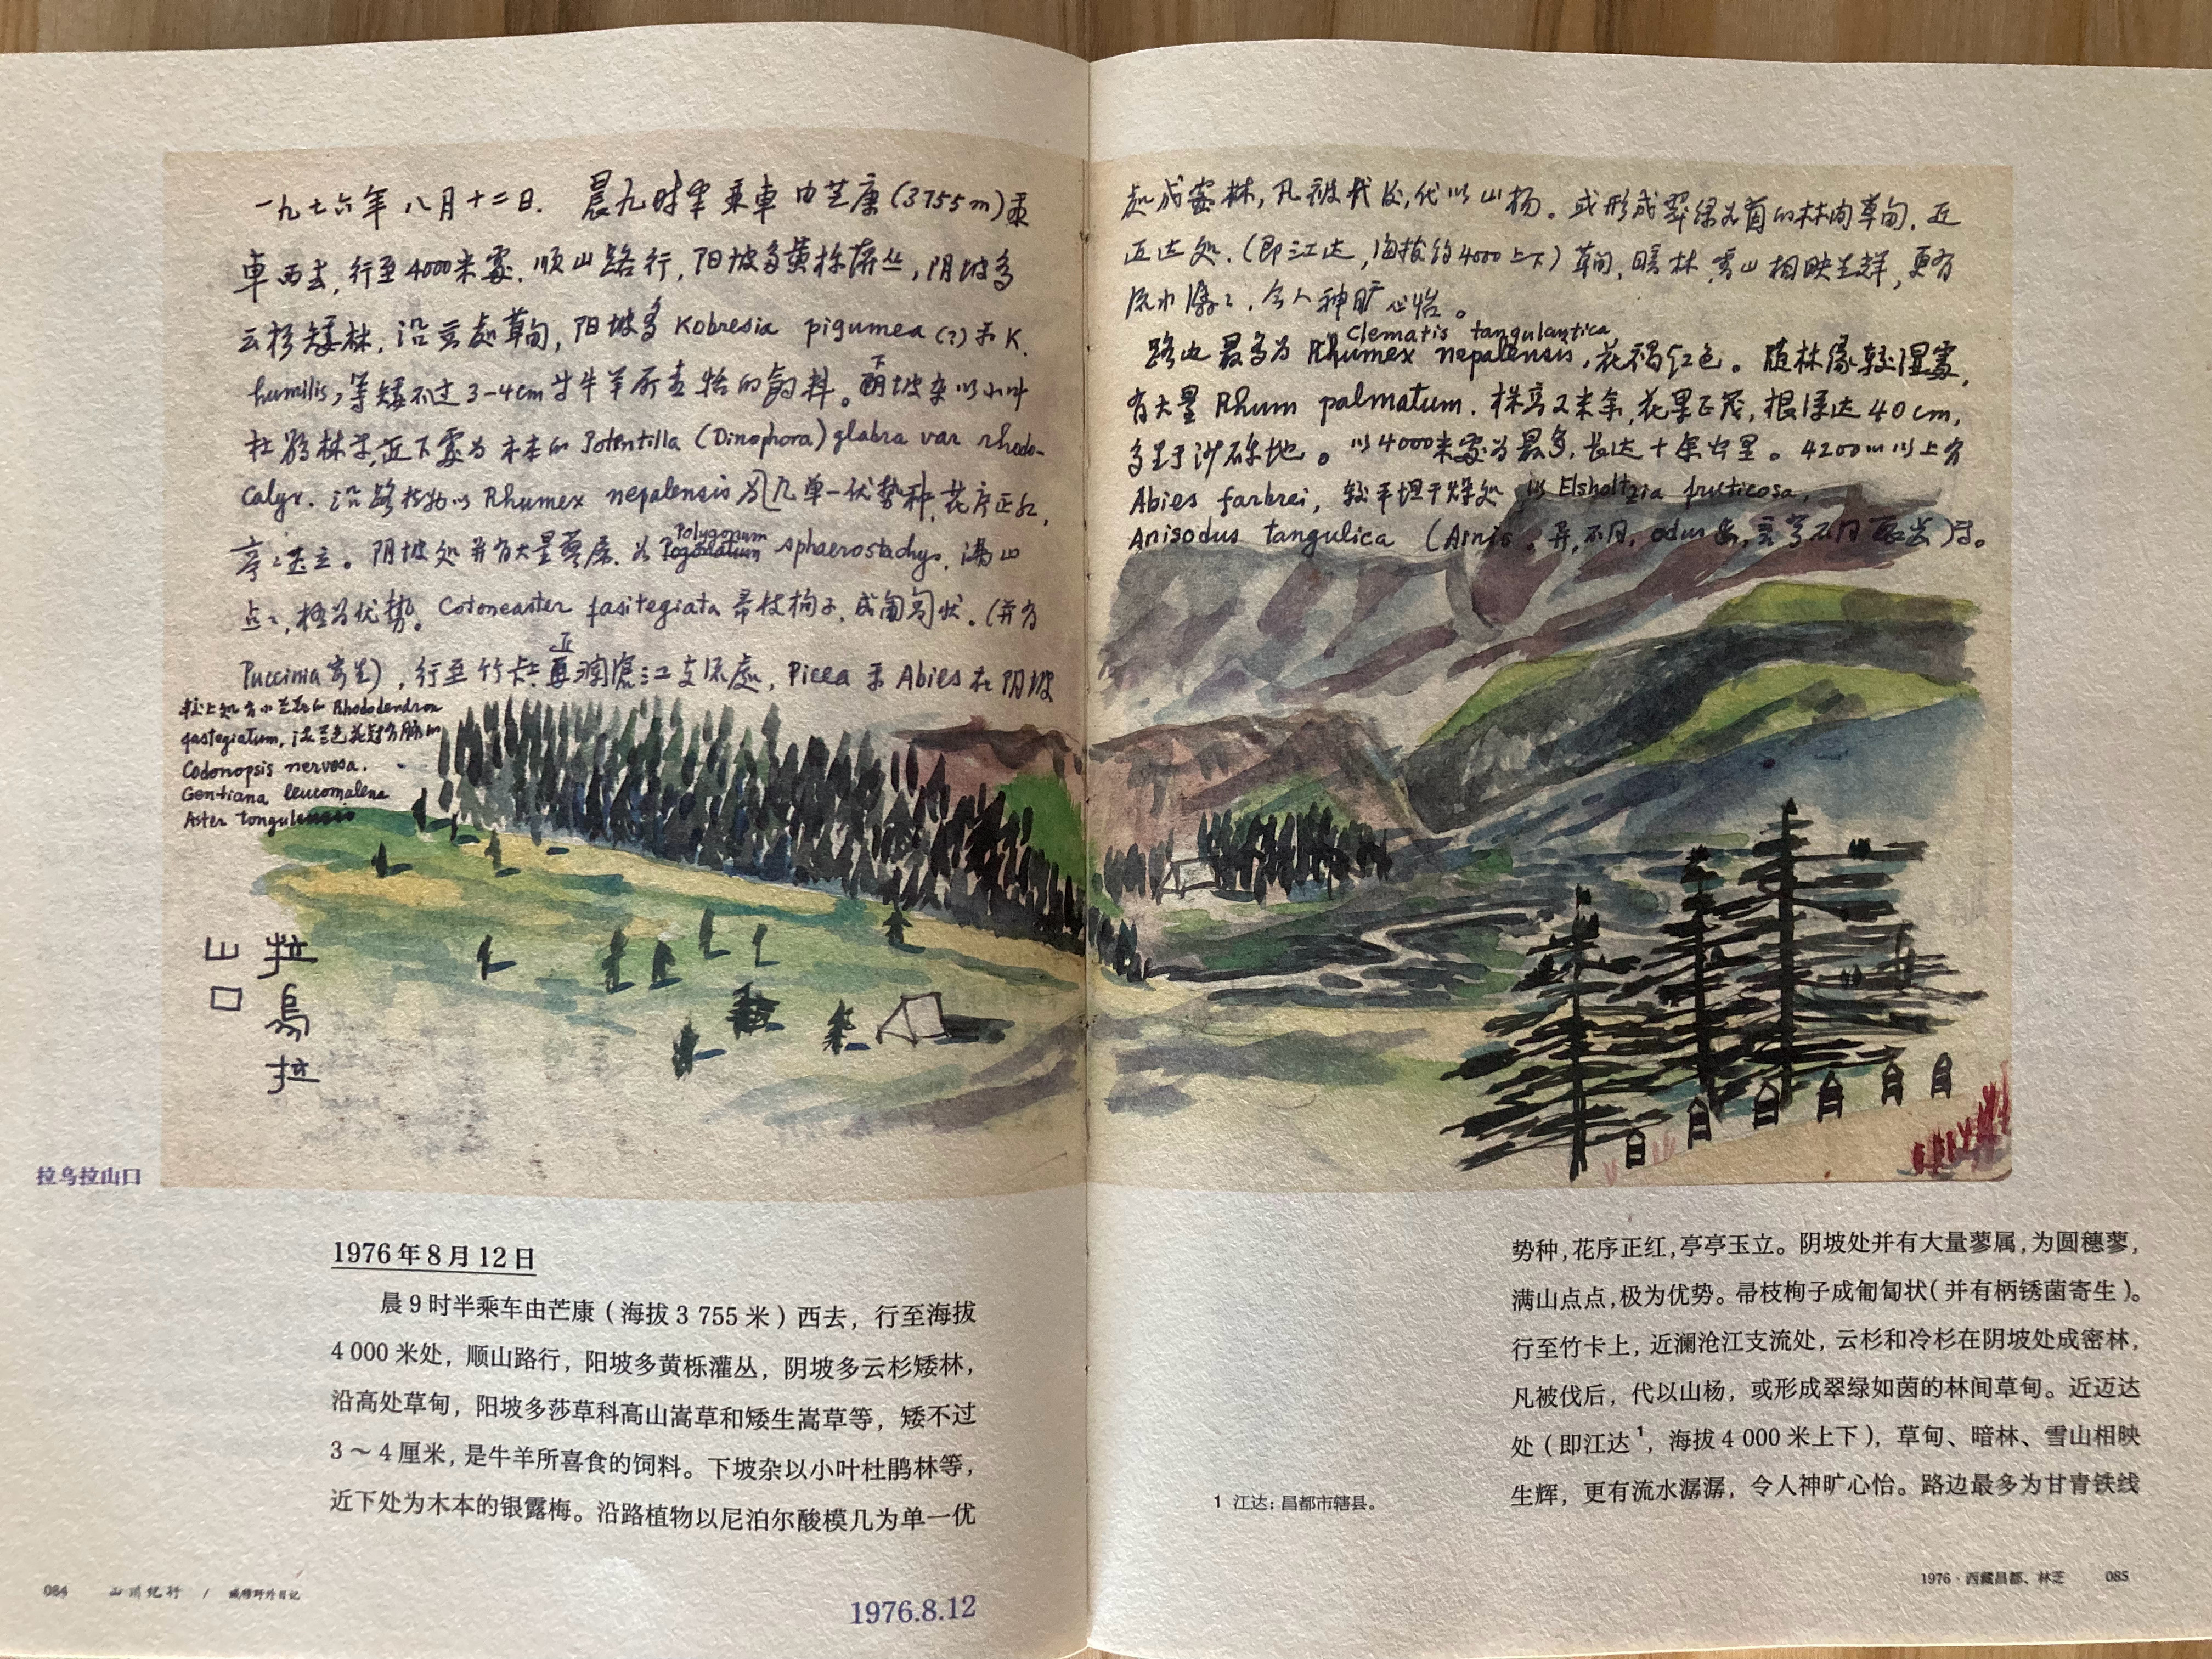 一九七六年八月十二日. 晨九时半乘車由芒康(3755m)乘
車西去,行至4000米處.顺山路行,阳坡多黄栎灌丛,阴坡多
云杉矮林,沿高处草甸,阳坡多Kobresia pigumea(?)和K.
humilis,等矮不过3-4cm 牛羊所喜 的飼料。下坡杂以小叶
杜鹃林等,近下處为木本的Potentilla (Dinophora) glabra var rhodo-
calyx. 沿路植物以Rhumex nepalensis为几单一优势种,花序正红,
亭亭玉立。阴坡处并有大量蓼属.为Polygonum sphaerostachys.满山
点点,极为优势。Cotoneaster fasitegiata帚枝栒子,成匍匐状。(并有
Puccinia寄生),行至竹卡上近澜滄江支流處,Picea和Abies在阴坡
Rhododendron
fastegiatum,
Codonopsis nervosa.
Gentiana leucomalena
Aster tongulensis
拉烏拉
山口
处成密林,凡被伐后,代以山杨。或形成翠绿如茵的林间草甸.近
迈达处.(即江达,海拔约4000上下)草甸,暗林,雪山相映生辉,更有
流水潺潺,令人神旷心怡。
Clematis tangulantica
路边最多为Rhumex nepalensis,花褐红色。随林缘较湿處,
有大量Rhum palmatum.株高2米余,花果正茂,根深达40cm,
多生于沙砾地。以4000米處为最多,长达十余公里。4200m以上有
Abies farbrei, 较平坦干燥处,以Elsholtzia fruticosa,
Anisodus tangulica (Arnis.异,不同,odus齿,
拉乌拉山口
1976年8月12日
晨9时半乘车由芒康(海拔3 755米)西去,行至海拔
4 000米处,顺山路行,阳坡多黄栎灌丛,阴坡多云杉矮林,
沿高处草甸,阳坡多莎草科高山嵩草和矮生嵩草等,矮不过
3~4厘米,是牛羊所喜食的饲料。下坡杂以小叶杜鹃林等,
近下处为木本的银露梅。沿路植物以尼泊尔酸模几为单一优
势种,花序正红,亭亭玉立。阴坡处并有大量蓼属,为圆穗蓼,
满山点点,极为优势。帚枝栒子成匍匐状(并有柄锈菌寄生)。
行至竹卡上,近澜沧江支流处,云杉和冷杉在阴坡处成密林,
凡被伐后,代以山杨,或形成翠绿如茵的林间草甸。近迈达
处(即江达1,海拔4 000米上下),草甸、暗林、雪山相映
生辉,更有流水潺潺,令人神旷心怡。路边最多为甘青铁线
1 江达:昌都市辖县。
084 山川纪行 / 臧穆野外日记
1976.8.12
1976·西藏昌都、林芝 085